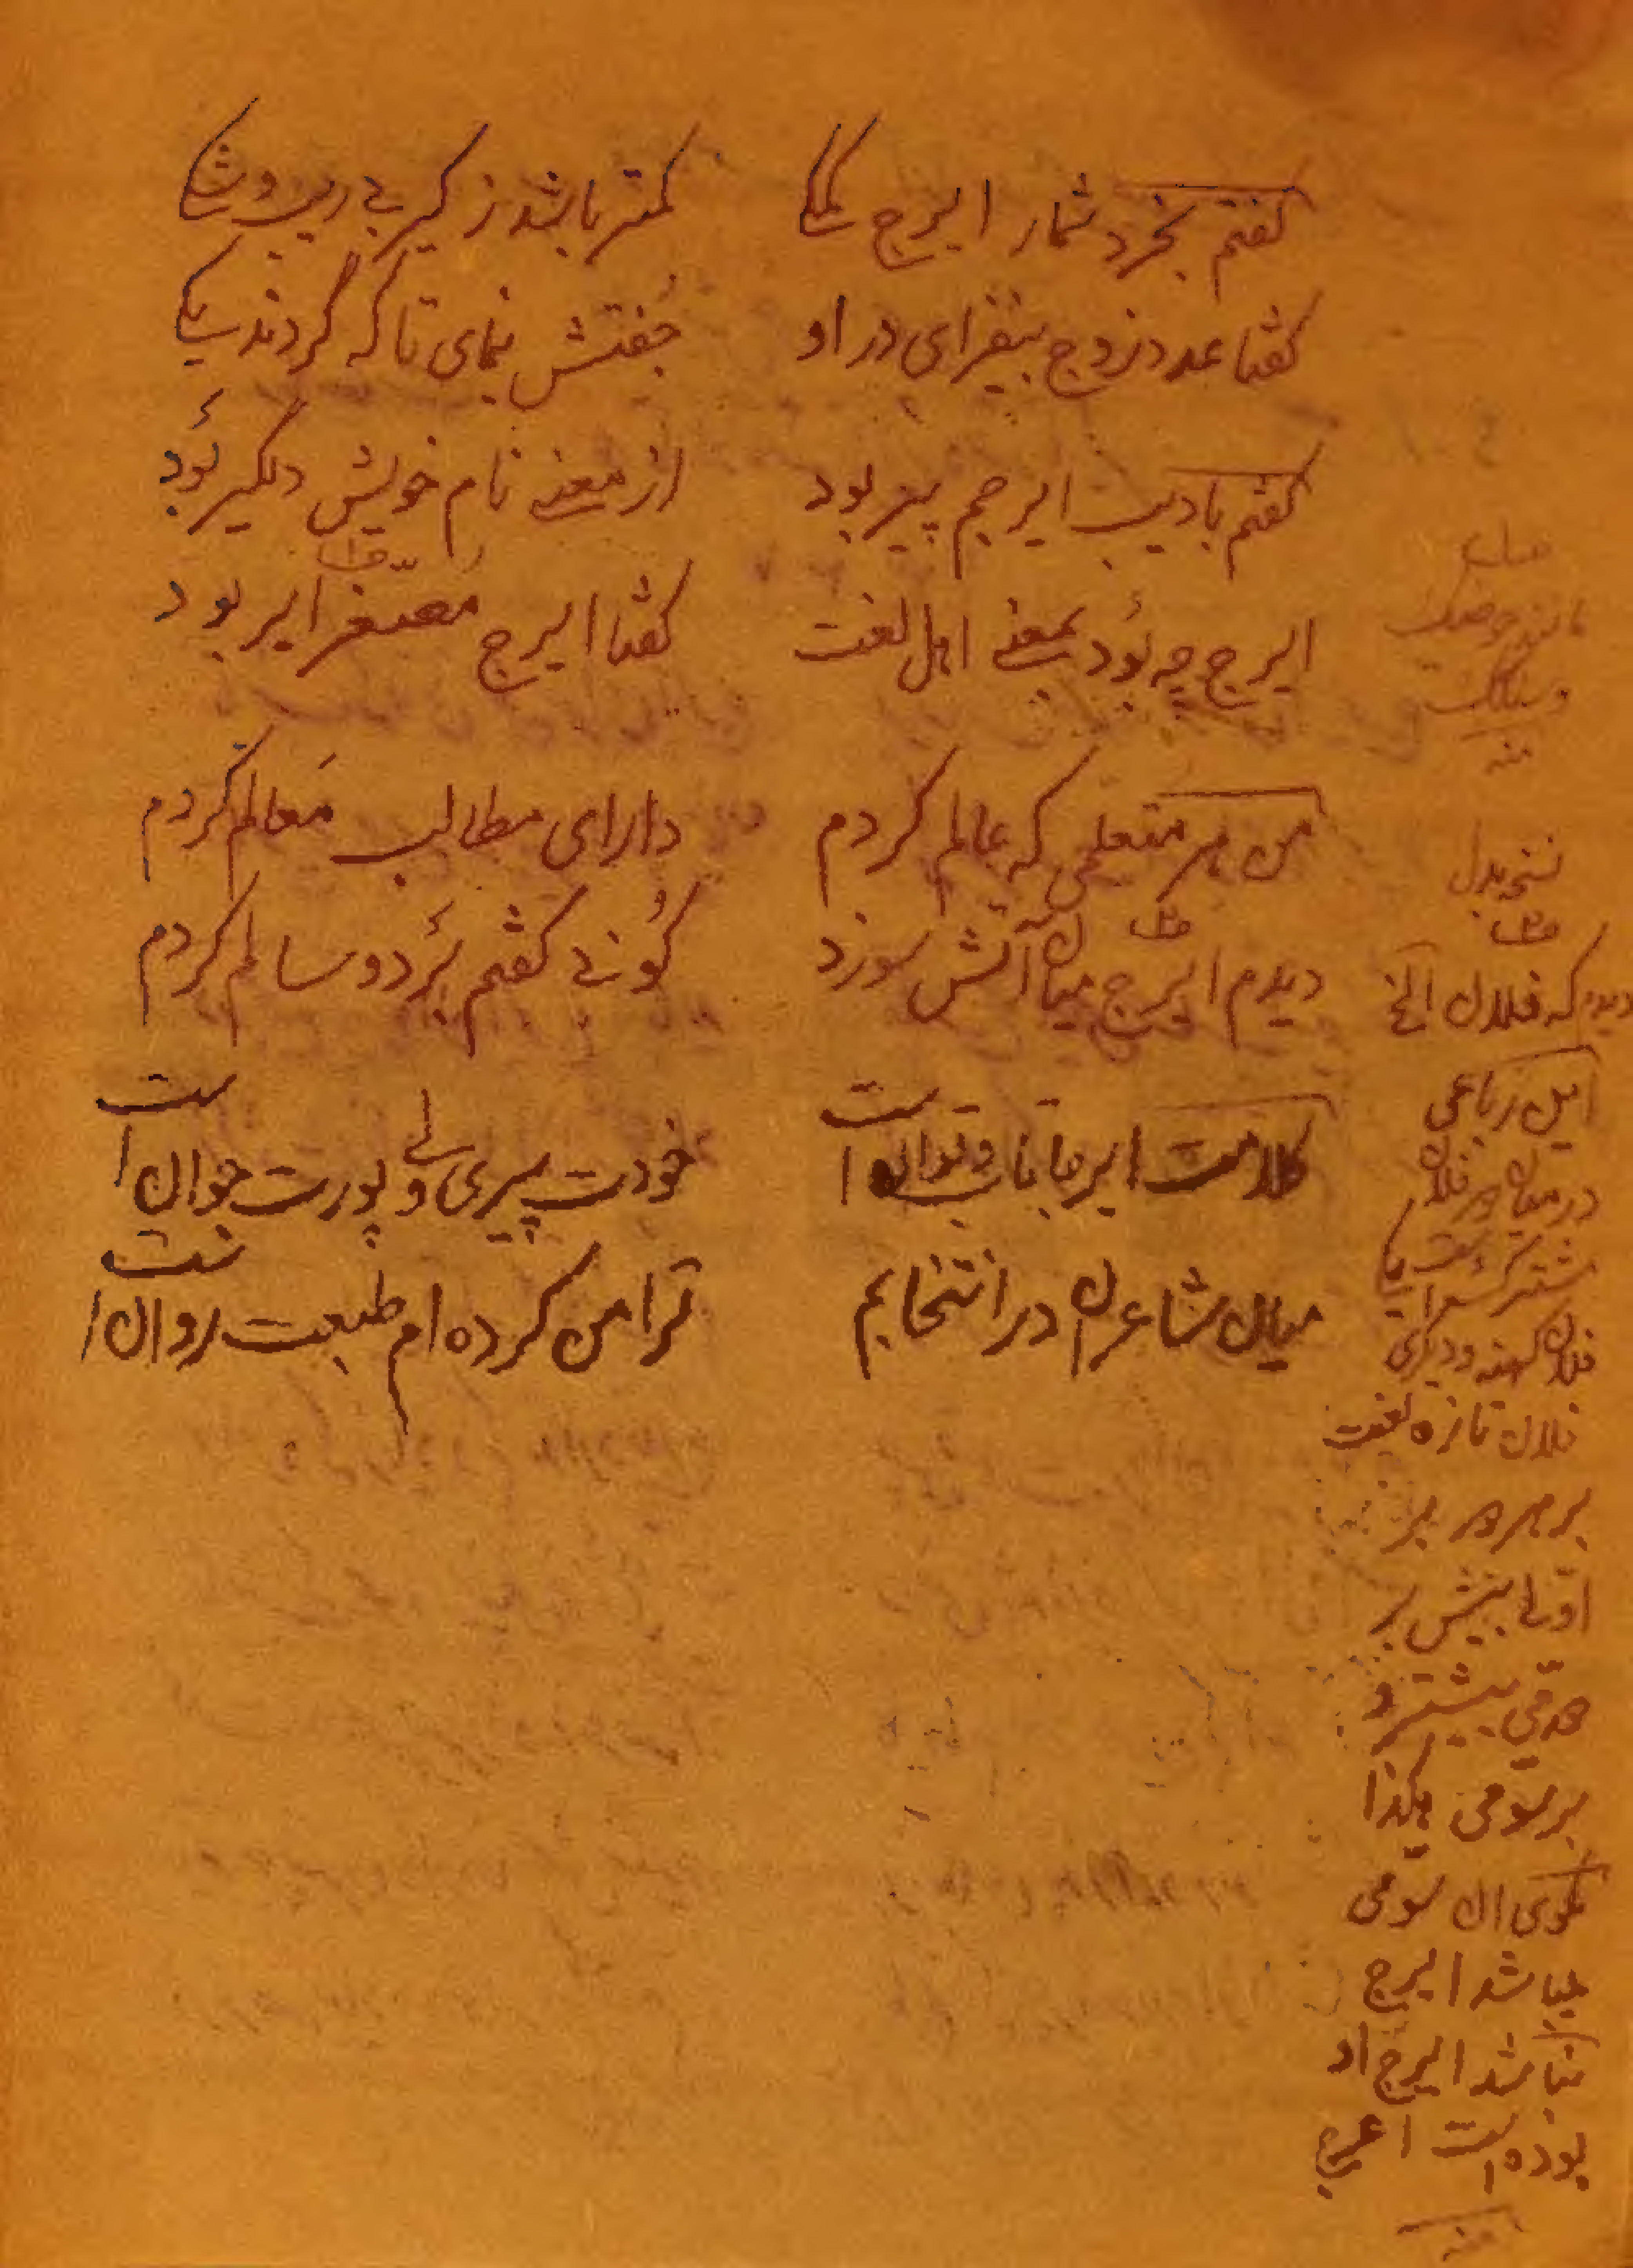 گفتم بخرد شمار ایرج ملکا    کمتر باشد ز کیر بے ریب و شکا
گفتا عدد زوج بیفزای در او    جفتش بنمای تا که گردند یکا
گفتم بادیب ایرجم پیر بود    از معنے نام خویش دلگیر بود
ایرج چه بُود بمعنے اهل لغت    گفتا ایرج مُصَغّر ایر بود
من هر متعلمی که عالم کردم    دارای مطالب مَعالم کردم
دیدم ایرج میان آتش سوزد    کُونے گفتم بَرد و سالم کردم
کلامت ایرجا با آب و توان است    خودت پیری ولے پورت جوان است
میان شاعران در انتخابم    ترا من کرده ام طبعت روان است
منه
نسخه بدل
دیدم که فلان الخ
این رباعی
در میان هر فلان
مشترک است یکی
فلان کهنه و دیگری
فلان تازه لغت
بر هر
اولے پیش بر
دومی بیشتر و
بر سومی هکذا
گوی ان سومی
میباشد ایرج
نباشد ایرج او
بوده است
منه